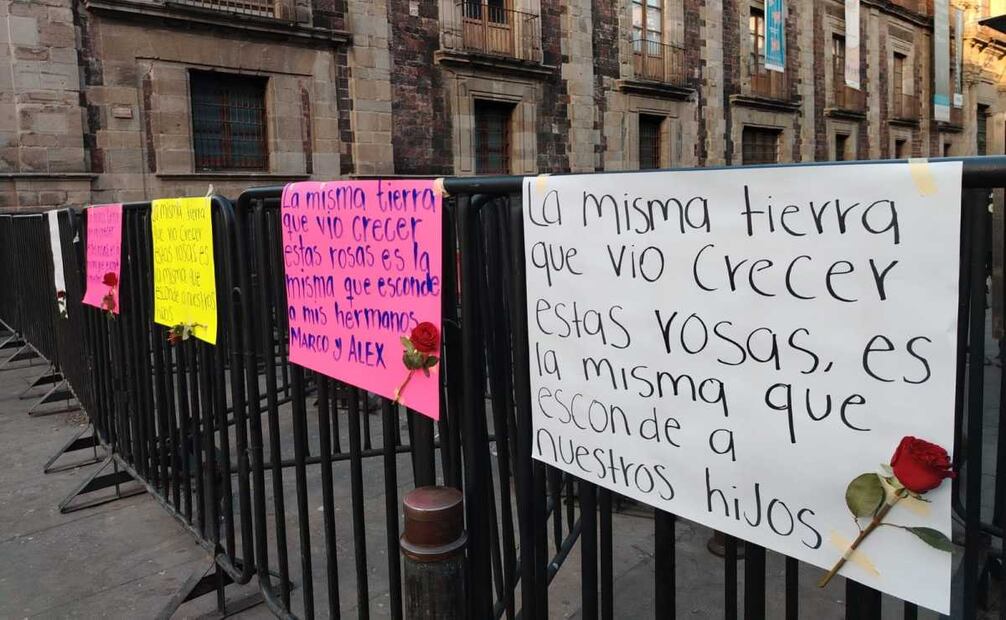 La misma tierra
que vio crecer
estas rosas es
la misma que
esconde a nuestros
hijos
La misma tierra
que vio crecer
estas rosas es la
misma que esconde
a mis hermanos
MARCO y ALEX
La misma tierra
que vio crecer
estas rosas, es
la misma que
esconde a
nuestros hijos